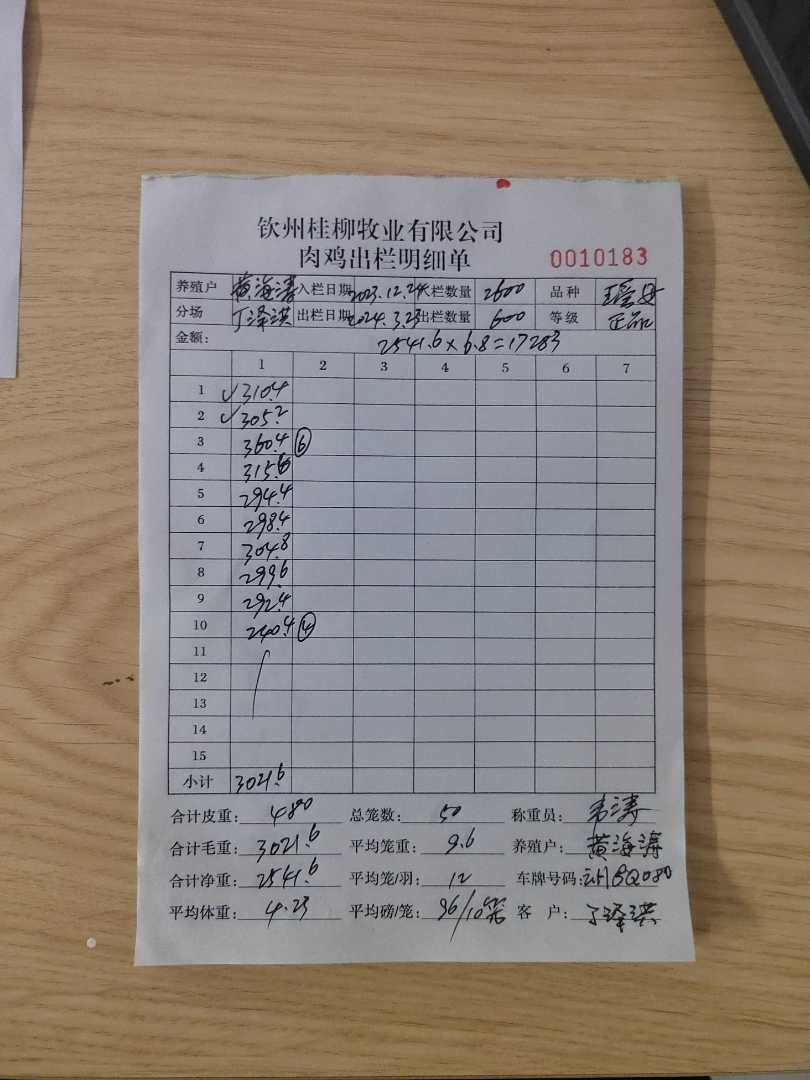 钦州桂柳牧业有限公司
肉鸡出栏明细单 0010183
养殖户 黄海涛 入栏日期 2023.12.24 入栏数量 2600 品种
分场 丁泽洪 出栏日期 2024.3.23 出栏数量 600 等级 正品
金额: 2541.6×6.8=17283
1 2 3 4 5 6 7
1 ✓310.4
2 ✓305.2
3 360.4 ⑥
4 315.6
5 294.4
6 298.4
7 304.8
8 299.6
9 292.4
10 240.4 ④
11
12
13
14
15
小计 3021.6
合计皮重: 480 总笼数: 50 称重员: 韦涛
合计毛重: 3021.6 平均笼重: 9.6 养殖户: 黄海涛
合计净重: 2541.6 平均笼/羽: 12 车牌号码:
平均体重: 4.23 平均磅/笼: 96/10笼 客 户: 丁泽洪